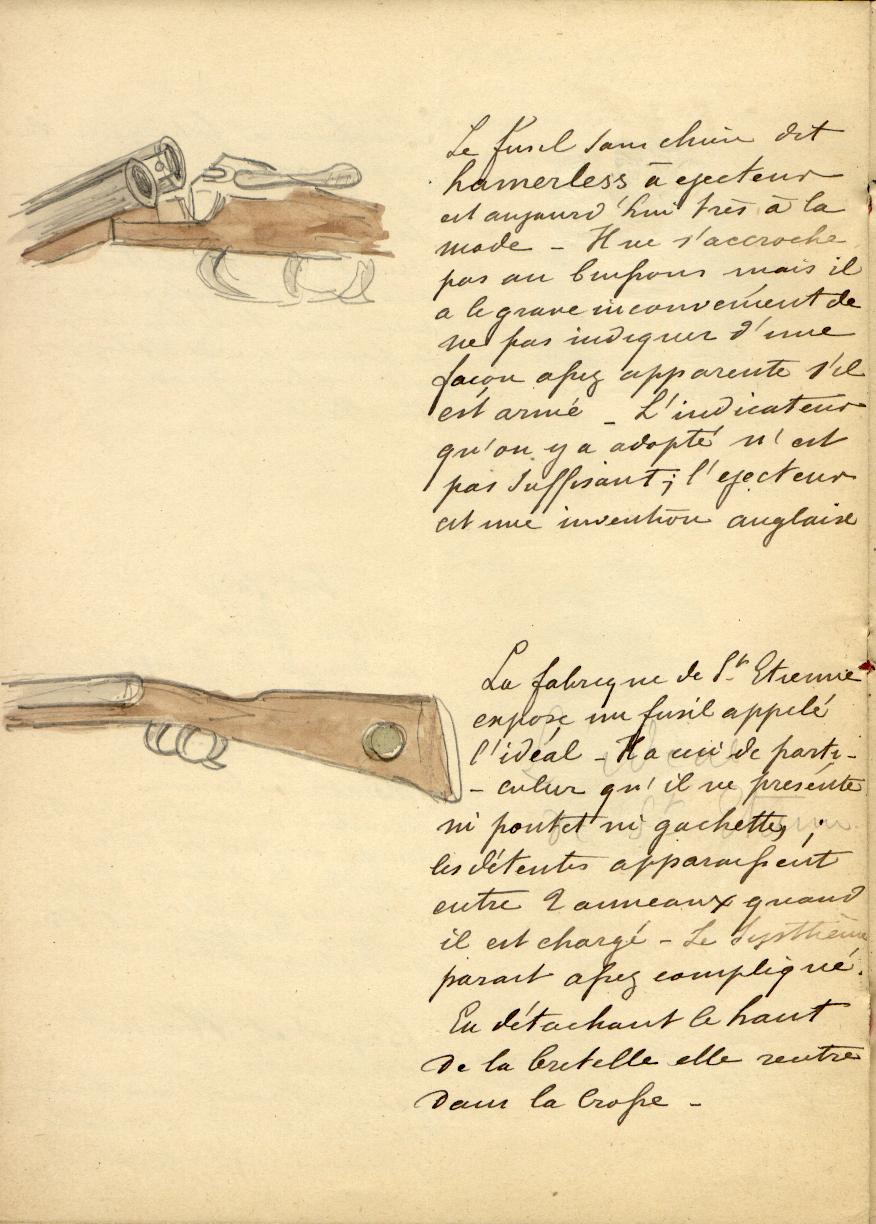 Le fusil sans chien dit
hamerless à ejecteur
est aujourd'hui très à la
mode - Il ne s'accroche
pas au buissons mais il
a le grave inconvenient de
ne pas indiquer d'une
façon assez apparente s'il
est armé - L'indicateur
qu'on y a adopté n'est
pas suffisant; l'ejecteur
est une invention anglaise
La fabrique de St Etienne
expose un fusil appelé
l'idéal - Il a ceci de parti-
- culier qu'il ne présente
ni pontet ni gachettes ;
les détentes apparaissent
entre 2 anneaux quand
il est chargé - Le systhème
parait assez compliqué.
En détachant le haut
de la bretelle elle rentre
dans la crosse -